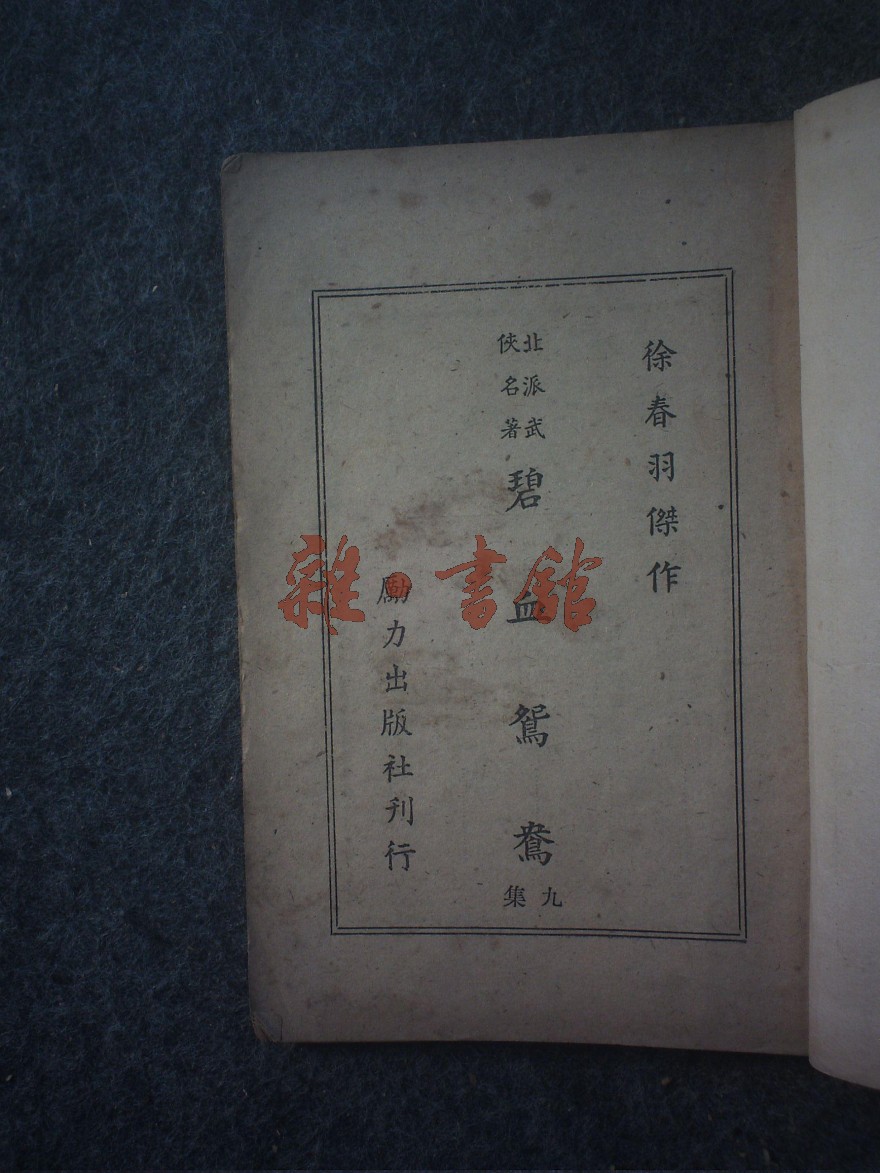 徐春羽傑作
北派武
俠名著
碧血鴛鴦
九集
勵力出版社刊行
雜·書館